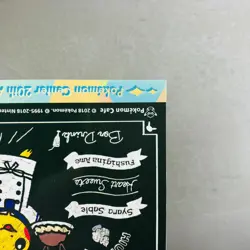 Pokémon Center 20th A
© Pokémon Cafe © 2018 Pokémon. © 1995-2018 Ninten
Bon Drinks!
Fushigina Ame
Heart Sweets
Syara Sable